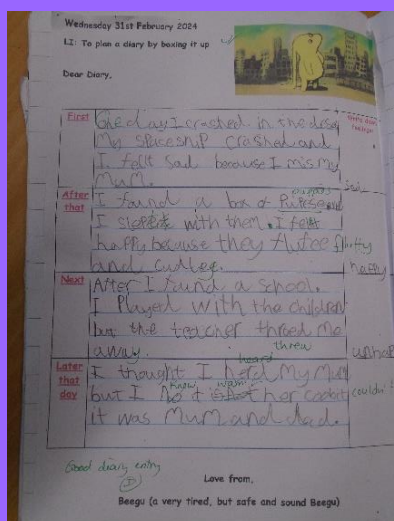 Wednesday 31st February 2024
LI: To plan a diary by boxing it up
Dear Diary,
First
One day I crashed in the
My spaceship crashed and
I felt sad because I mis my
Mum.
sad
After that
I found a box of
puppies
I with them. I felt
happy because they fluffy
and
happy
Next
After I found a school.
I Played with the children
but the teacher threed me
threw
away.
Later that day
heard
I thought I herd My Mum
know wasn't
but I it her
couldn't
it was Mum and dad.
Good diary entry
Love from,
Beegu (a very tired, but safe and sound Beegu)